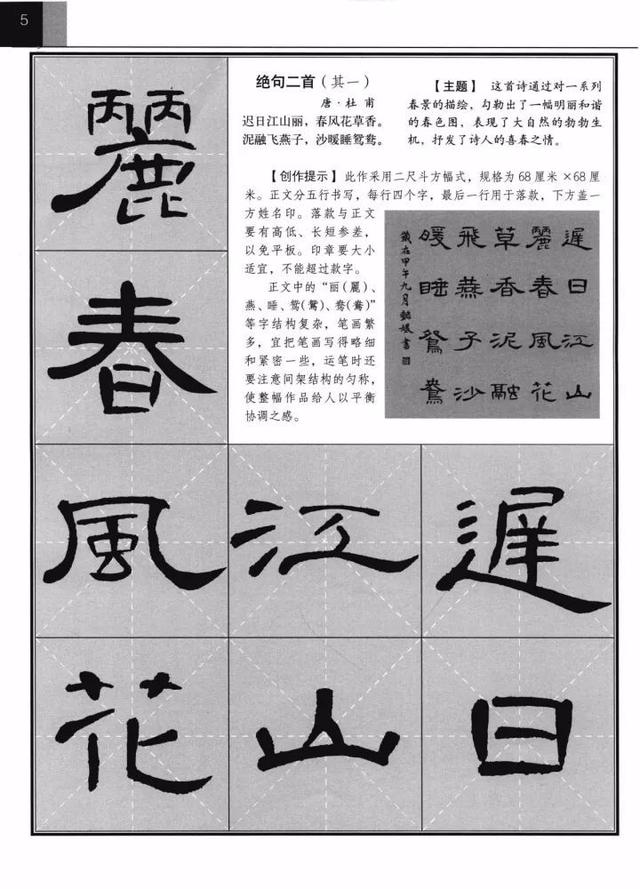 5
绝句二首（其一）
唐·杜 甫
迟日江山丽，春风花草香。
泥融飞燕子，沙暖睡鸳鸯。
【主题】 这首诗通过对一系列
春景的描绘，勾勒出了一幅明丽和谐
的春色图，表现了大自然的勃勃生
机，抒发了诗人的喜春之情。
【创作提示】此作采用二尺斗方幅式，规格为68厘米×68厘
米。正文分五行书写，每行四个字，最后一行用于落款，下方盖一
方姓名印。落款与正文
要有高低、长短参差，
以免平板。印章要大小
适宜，不能超过款字。
正文中的“丽（麗）、
燕、睡、鸳（鴛）、鸯（鴦）”
等字结构复杂，笔画繁
多，宜把笔画写得略细
和紧密一些，运笔时还
要注意间架结构的匀称，
使整幅作品给人以平衡
协调之感。
遲日江山
麗春風花
草香泥融
飛燕子沙
暖睡鴛鴦
歲在甲午九月書
遲日
江山
麗春風花